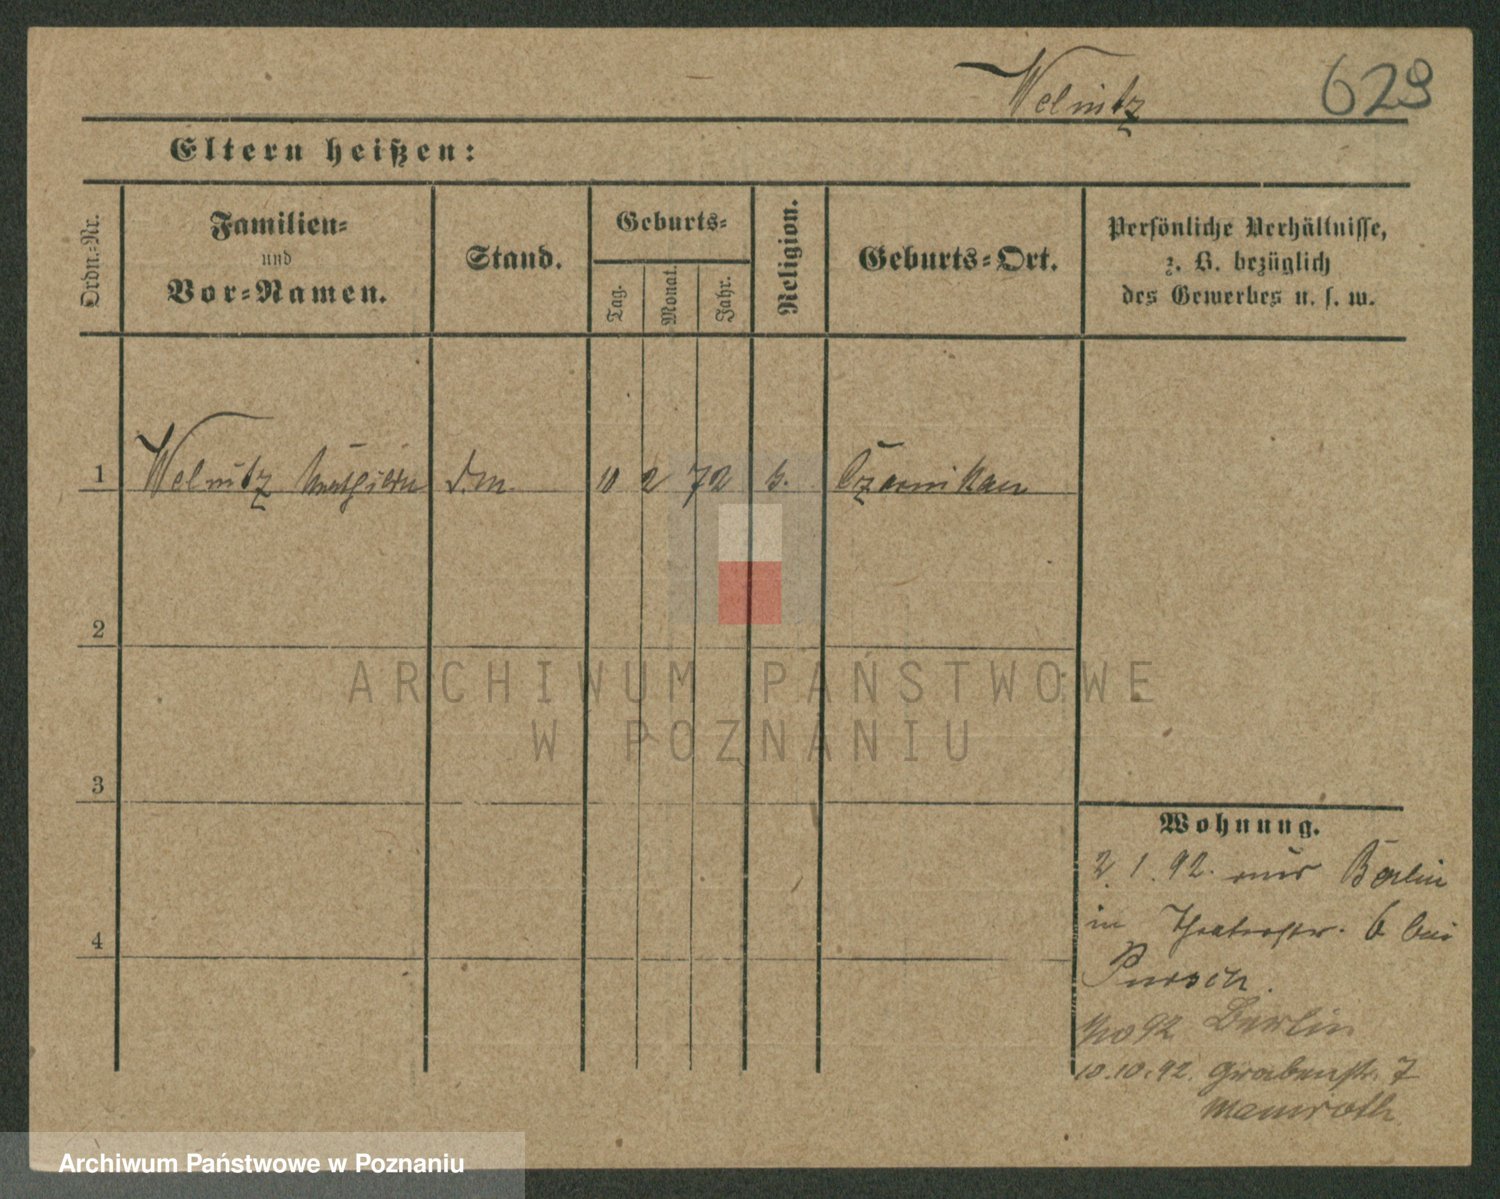 Welnitz 629
Eltern heißen:
Ordn.-Nr.
Familien-
und
Vor-Namen.
Stand.
Geburts-
Tag.
Monat.
Jahr.
Religion.
Geburts-Ort.
Persönliche Verhältnisse,
z. B. bezüglich
des Gewerbes u. s. w.
1 Welnitz d. m. 10 2 72 Czarnikau
2
3
4
Wohnung.
2. 1. 92. aus Berlin
in Theaterstr. 6 bei
Pursch.
92 Berlin
10.10.92. Grabenstr. 7
Mamroth
ARCHIWUM PAŃSTWOWE
W POZNANIU
Archiwum Państwowe w Poznaniu